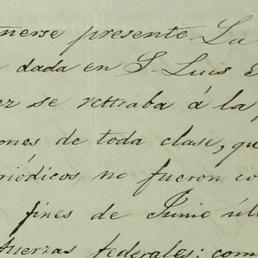 nerse presente. La
dada en S. Luis
se retiraba á la
ones de toda clase, qu
riódicos no fueron co
fines de Junio úl
fuerzas federales; com